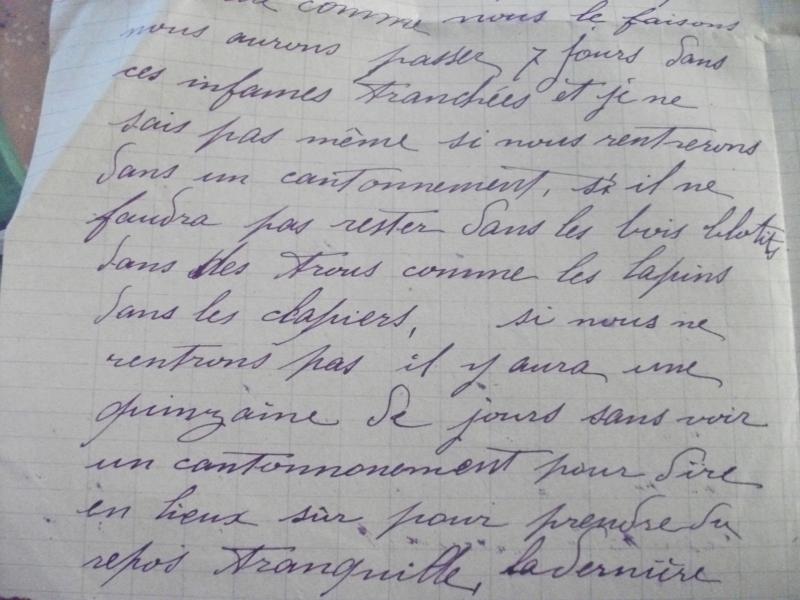 comme nous le faisons
nous aurons passer 7 jours dans
ces infames tranchées et je ne
sais pas même si nous rentrerons
dans un cantonnement, si il ne
faudra pas rester dans les bois blotits
dans des trous comme les lapins
dans les clapiers, si nous ne
rentrons pas il y aura une
quinzaine de jours sans voir
un cantonnonement pour dire
en lieux sùr pour prendre du
repos tranquille, la dernière